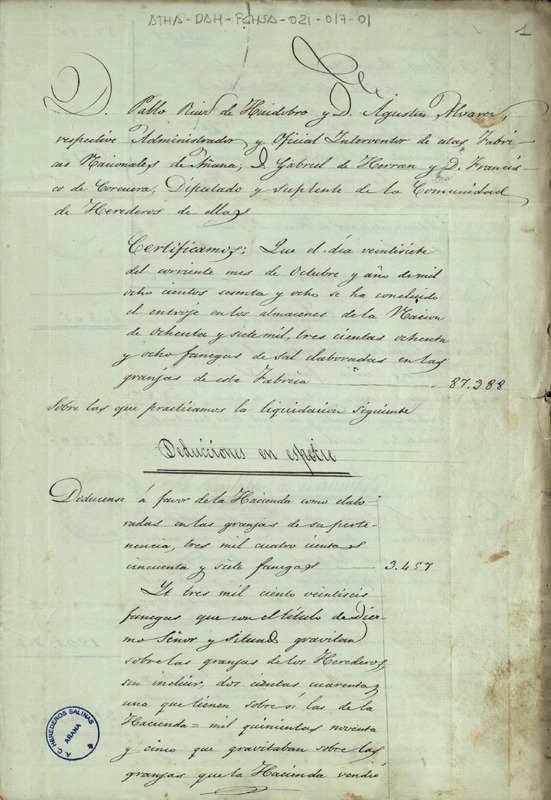 ATHA-DAH-FCHSA-021-017-01
1
D. Pablo Ruiz de Huidobro y D. Agustin Alvarez,
respective Administrador y Oficial Interventor de estas Fabri-
cas Nacionales de Añana; D. Gabriel de Herran y D. Francis-
co de Corcuera, Diputado y suplente de la Comunidad
de Herederos de ellas
Certificamos: Que el dia veintisiete
del corriente mes de Octubre y año de mil
ocho cientos sesenta y ocho se ha concluido
el entroje en los almacenes de la Nacion
de ochenta y siete mil, tres cientas ochenta
y ocho fanegas de sal elaboradas en las
granjas de esta Fabrica 87.388
Sobre las que practicamos la liquidacion siguiente
Deducciones en especie
Deducense á favor de la Hacienda como elabo-
radas en las granjas de su perte-
nencia, tres mil cuatro cientas
cincuenta y siete fanegas 3.457
Yt tres mil ciento veintiseis
fanegas que con el título de Diez-
mo Señor y Situad gravitan
sobre las granjas de los Herederos,
sin incluir, dos cientas cuarenta y
una que tienen sobre sí las de la
Hacienda = mil quinientas noventa
y cinco que gravitaban sobre las
granjas que la Hacienda vendió
A. C. HEREDEROS SALINAS
AÑANA